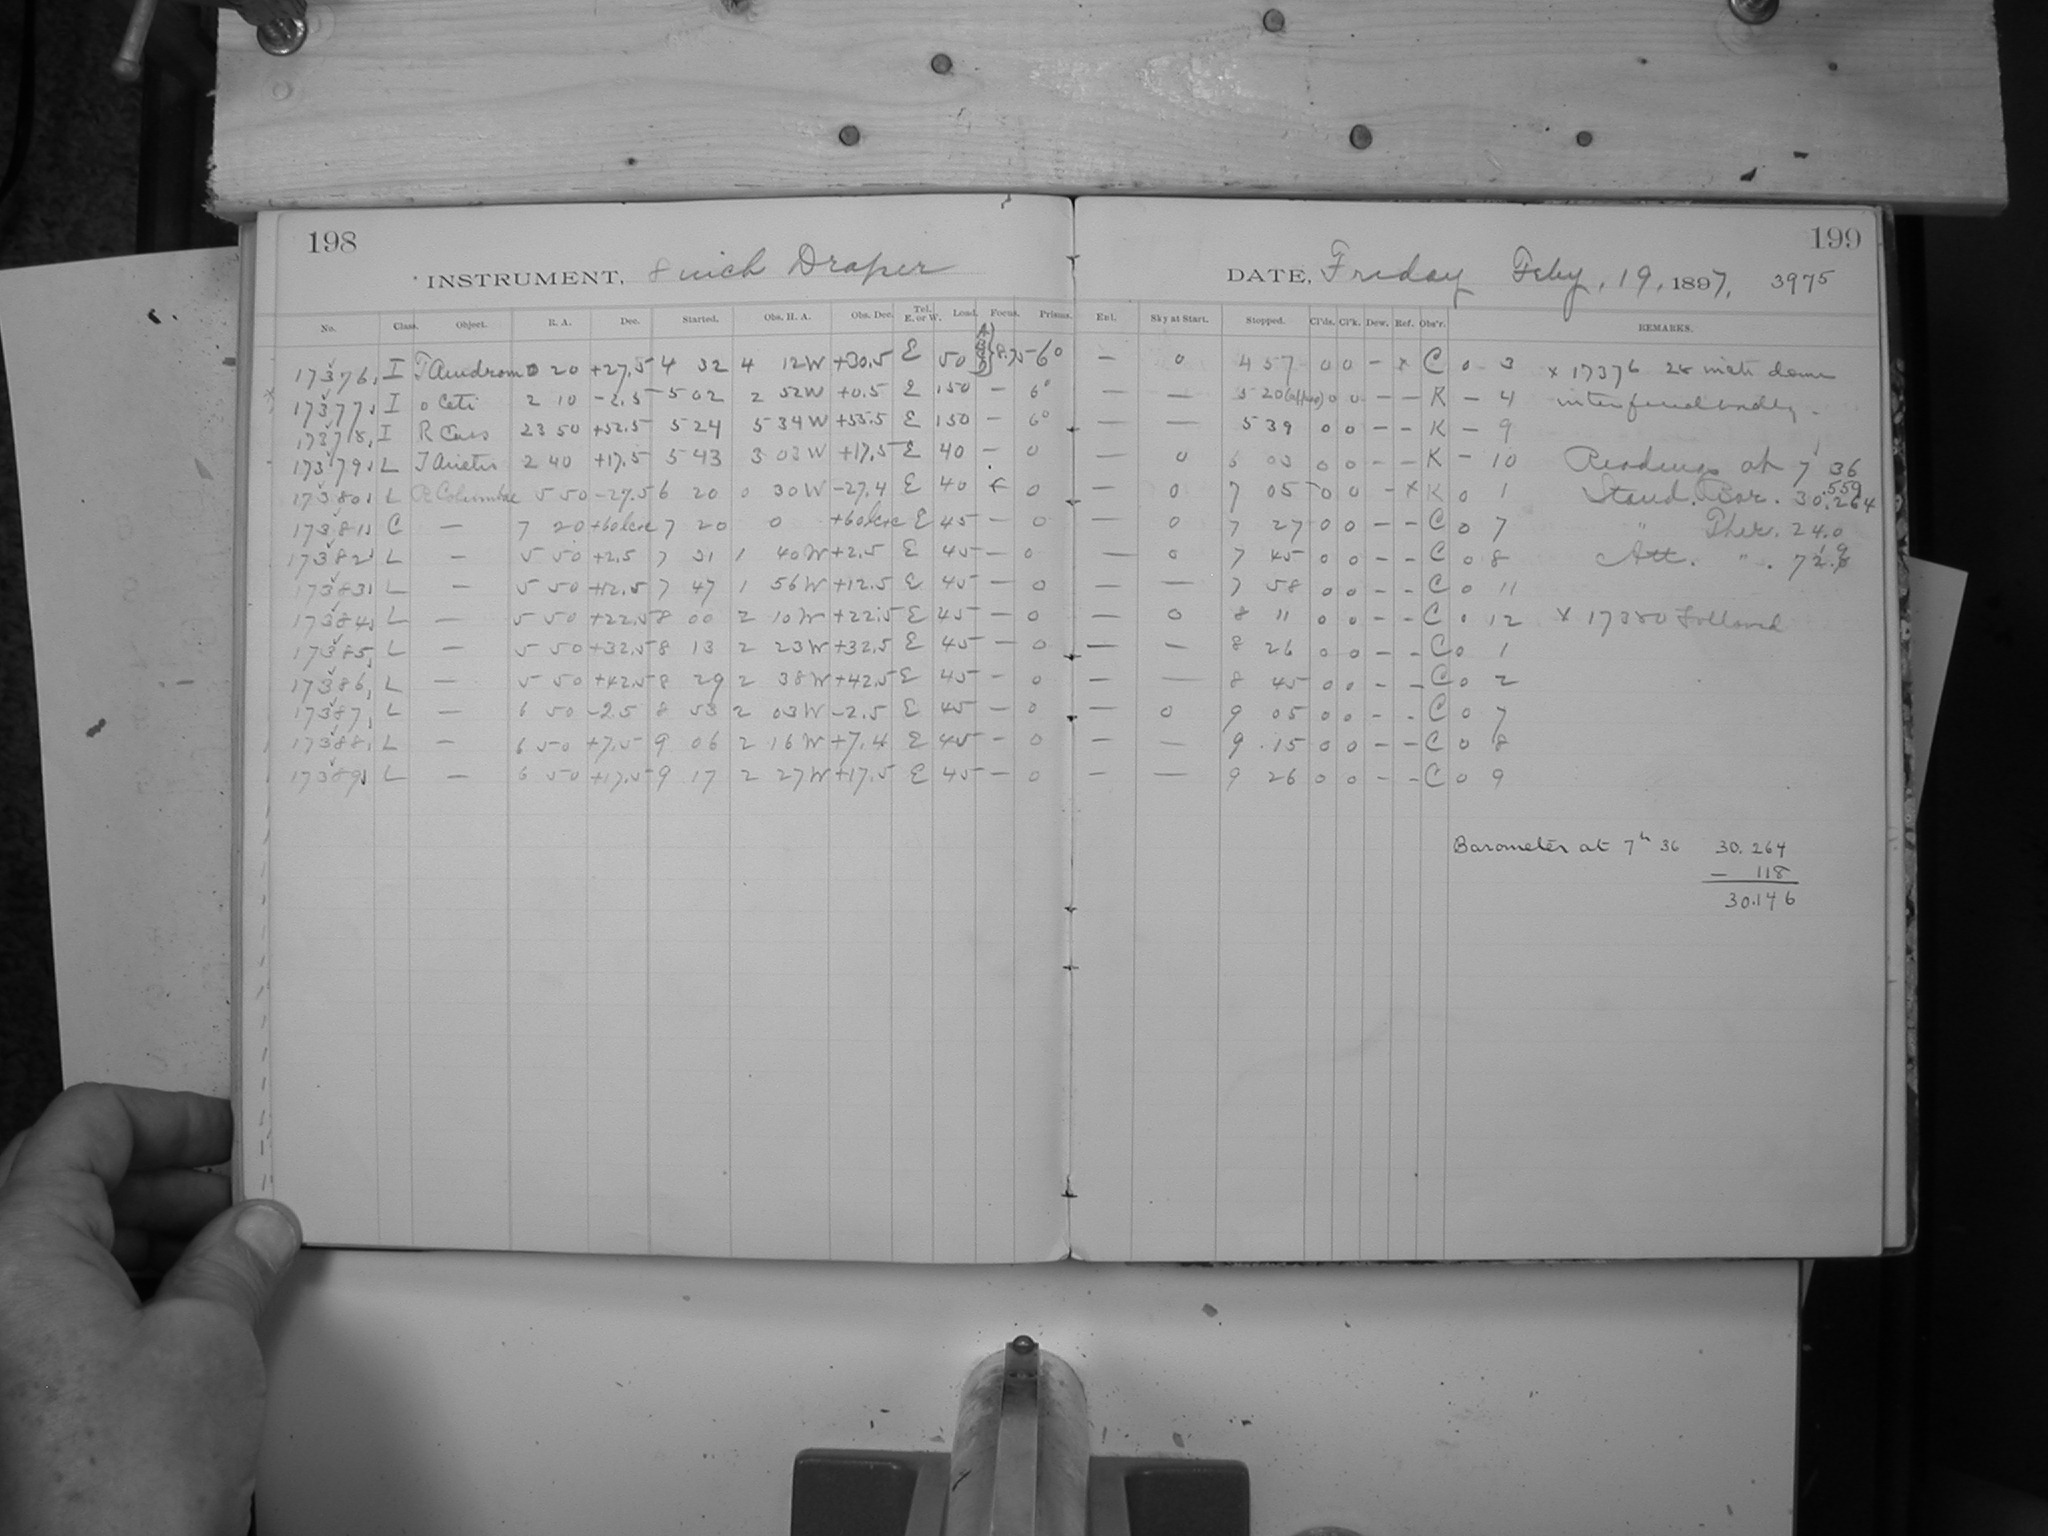 198
199
INSTRUMENT, 8 inch Draper
DATE, Friday Feby, 19, 1897, 3975
No. Class. Object. R. A. Dec. Started. Obs. H. A. Obs. Dec. Tel. E. or W. Load. Focus. Prisms. Ext. Sky at Start. Stopped. Cl'ds. Cl'k. Dew. Ref. Obs'r. REMARKS.
17376, I T Androm 0 20 +27.5 4 32 4 12W +30.5 E 50 8.75 - 6° — 0 4 57 0 0 - x C 0 3 x 17376 28 inch dome
17377, I o Ceti 2 10 -2.5 5 02 2 52W +0.5 E 150 - 6° — — 5 20 0 0 - - K - 4 interfered badly.
17378, I R Cass 23 50 +52.5 5 24 5 34W +55.5 E 150 - 6° — — 5 39 0 0 - - K - 9
17379, L T Arietis 2 40 +17.5 5 43 3 03W +17.5 E 40 - 0 — 0 6 03 0 0 - - K - 10 Readings at 7 36
17380, L R Columbae 5 50 -27.5 6 20 0 30W -27.4 E 40 0 — 0 7 05 0 0 - x K 0 1 Stand. Bar. 30.264
17381, C — 7 20 +60 7 20 0 +60 E 45 - 0 — 0 7 27 0 0 - - C 0 7 " Ther. 24.0
17382, L — 5 50 +2.5 7 31 1 40W +2.5 E 45 - 0 — 0 7 45 0 0 - - C 0 8 Att. " .
17383, L — 5 50 +12.5 7 47 1 56W +12.5 E 45 - 0 — — 7 58 0 0 - - C 0 11
17384, L — 5 50 +22.5 8 00 2 10W +22.5 E 45 - 0 — 0 8 11 0 0 - - C 0 12 x 17380 followed
17385, L — 5 50 +32.5 8 13 2 23W +32.5 E 45 - 0 — — 8 26 0 0 - - C 0 1
17386, L — 5 50 +42.5 8 29 2 38W +42.5 E 45 - 0 — — 8 45 0 0 - - C 0 2
17387, L — 6 50 -2.5 8 53 2 03W -2.5 E 45 - 0 — 0 9 05 0 0 - - C 0 7
17388, L — 6 50 +7.5 9 06 2 16W +7.4 E 45 - 0 — — 9 15 0 0 - - C 0 8
17389, L — 6 50 +17.5 9 17 2 27W +17.5 E 45 - 0 — — 9 26 0 0 - - C 0 9
Barometer at 7h 36 30.264
- 118
30.146